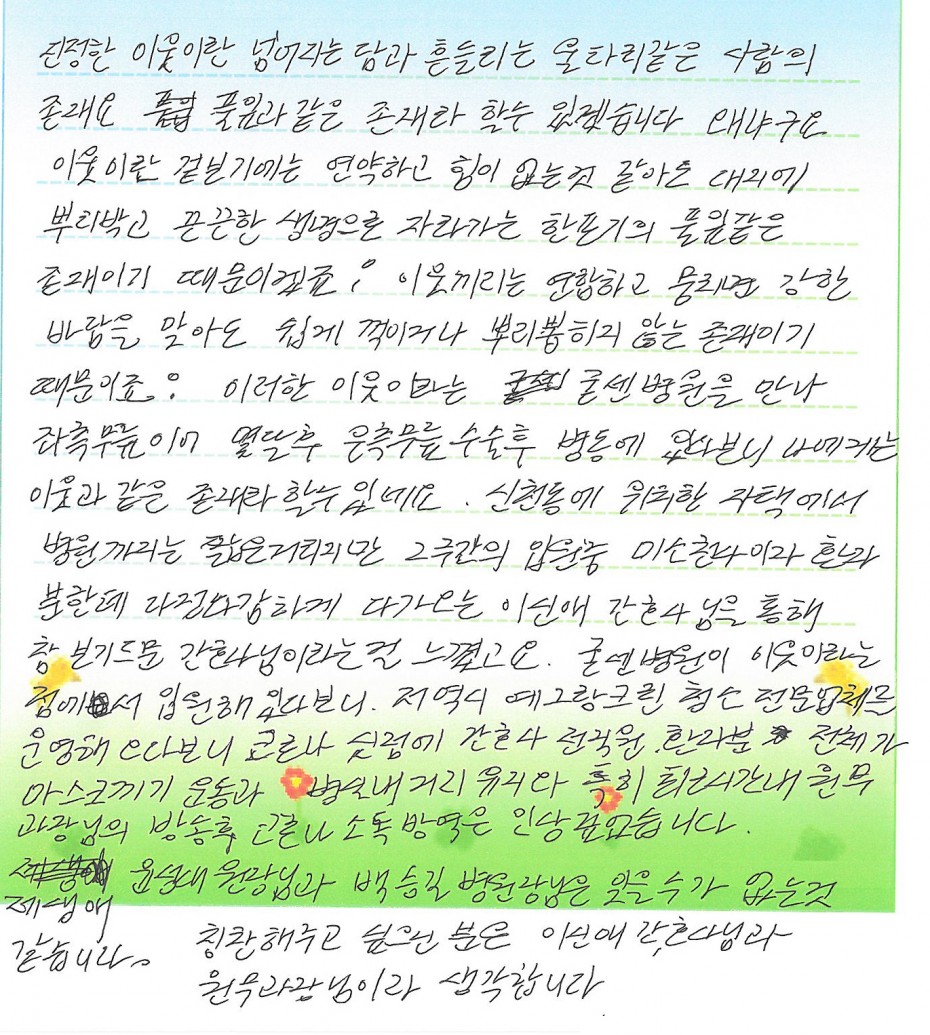 진정한 이웃이란 넘어지는 담과 흔들리는 울타리같은 사람의
존재요 풀잎과 같은 존재라 할수 있겠습니다 왜냐구요
이웃이란 겉보기에는 연약하고 힘이 없는것 같아도 대지에
뿌리박고 끈끈한 생명으로 자라가는 한포기의 풀잎같은
존재이기 때문이겠죠; 이웃끼리는 연합하고 뭉치면 강한
바람을 맞아도 쉽게 꺽이거나 뿌리뽑히지 않는 존재이기
때문이죠; 이러한 이웃이라는 굳센병원을 만나
좌측무릎이어 몇달후 우측무릎수술후 병동에 있다보니 나에게는
이웃과 같은 존재라 할수 있네요. 신천동에 위치한 자택에서
병원까지는 짧은거리지만 2주간의 입원중 미소천사이자 환자
분한테 다정다감하게 다가오는 이신애 간호사님을 통해
참 보기드문 간호사님이라는걸 느꼈고요. 굳센병원이 이웃이라는
점에서 입원해 있다보니. 저역시 예그랑크린 청소 전문업체를
운영해 오다보니 코로나 시점에 간호사 전직원 환자분 전체가
마스크끼기 운동과 병실내 거리 유지와 특히 퇴근시간내 원무
과장님의 방송후 코로나 소독 방역은 인상 깊었습니다.
제생애 윤성대 원장님과 백승길 병원장님은 잊을수가 없는것
같습니다. 칭찬해주고 싶으신 분은 이신애 간호사님과
원무과장님이라 생각합니다